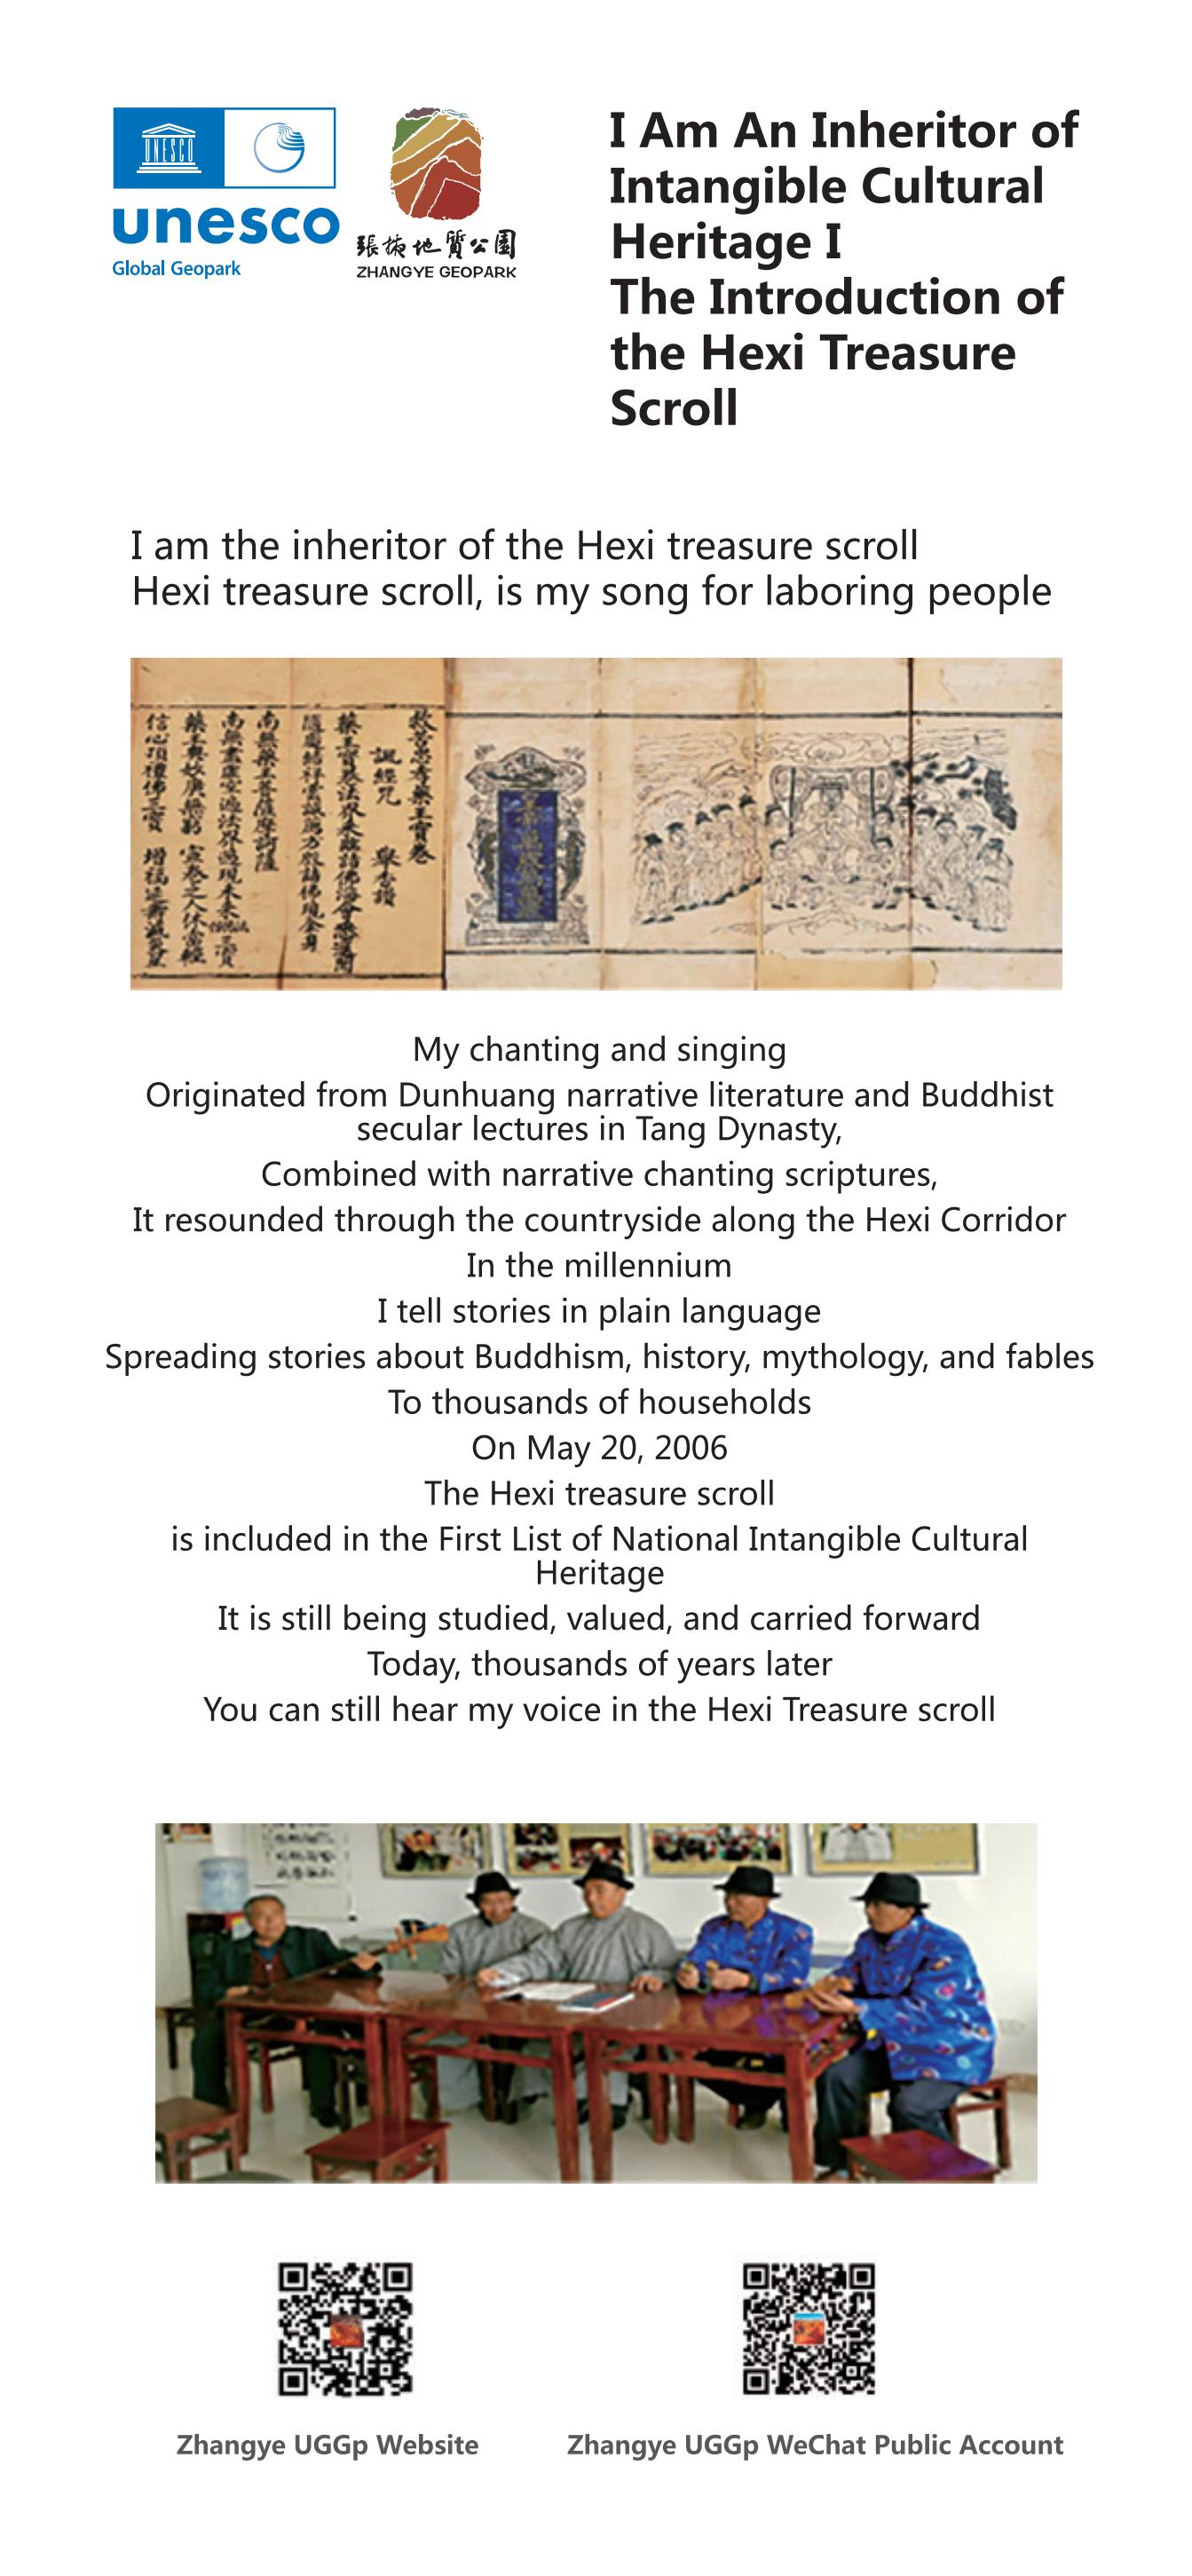 UNESCO
unesco
Global Geopark
張掖地質公園
ZHANGYE GEOPARK
I Am An Inheritor of
Intangible Cultural
Heritage I
The Introduction of
the Hexi Treasure
Scroll
I am the inheritor of the Hexi treasure scroll
Hexi treasure scroll, is my song for laboring people
救苦忠孝藥王寶卷
誦經咒 舉香讚
南無藥王菩薩摩訶薩
信心頂禮佛三寶 增福延壽滅災星
My chanting and singing
Originated from Dunhuang narrative literature and Buddhist
secular lectures in Tang Dynasty,
Combined with narrative chanting scriptures,
It resounded through the countryside along the Hexi Corridor
In the millennium
I tell stories in plain language
Spreading stories about Buddhism, history, mythology, and fables
To thousands of households
On May 20, 2006
The Hexi treasure scroll
is included in the First List of National Intangible Cultural
Heritage
It is still being studied, valued, and carried forward
Today, thousands of years later
You can still hear my voice in the Hexi Treasure scroll
Zhangye UGGp Website
Zhangye UGGp WeChat Public Account